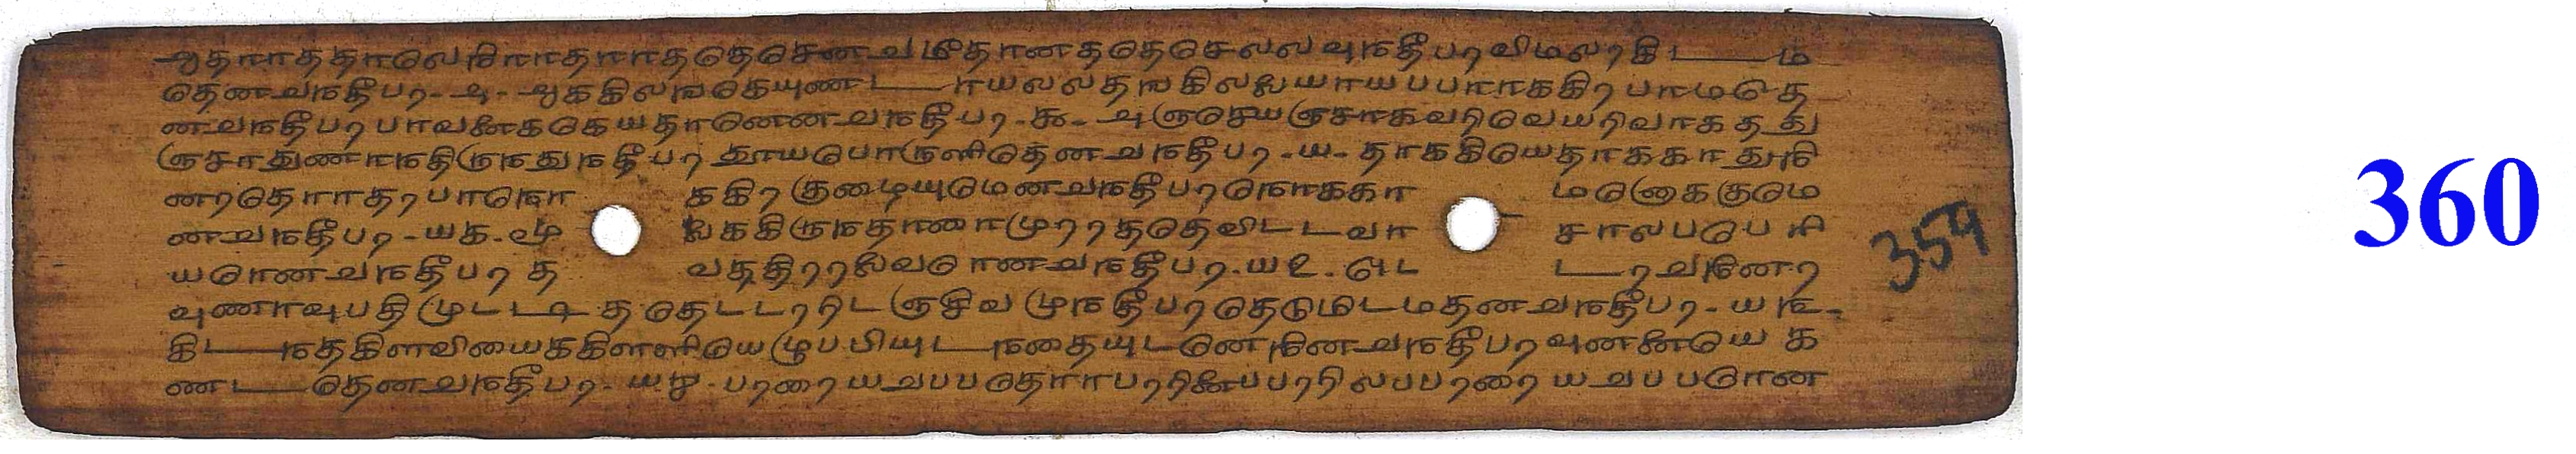 ஆதாாததாலெசிாாதாாதததெசெனவமீதானததெசெலலவுநதீபரவிமலரகிடம
தெனவுநதீபர-அ-ஆககிலஙகெயுணடாயலலதஙகிலலையாயபபாாககிரபாமதெ
னவுநதீபரபாவனைககெயதானெனவுநதீபர-கூ-அஞசெயஞசாகவறிவெயறிவாகதது
ஞசாதுணாநதிருநதுநதீபரதூயபொருளிதெனவுநதீபர-ய-தாககியெதாககாதுநி
னரதொாதரபாநொ ககிரகுழையுமெனவுநதீபரநொககா மஞெகுமெ
னவுநதீபர-யக-மூ லைககிருநதானைமுரரததெவிடடவா சாலபபெரி
யானெவுநதீபர த வததிரரலைவானெவுநதீபர-யஉ-டெ டரவினேர
வுணாவுபதிமுடடிதததெடடரரிடஞசிவமுநதீபரதெடுமிடமதனவுநதீபர-யங-
கிடநதகிளவியைககிளளியெழுபபியுடநதையுடனெநினைவுநதீபரவுனனையெக
ணடதெனவுநதீபர-யச-பரரையவபபதொாபரரினைபபரரிலபபரரையவபபானெ
359
360